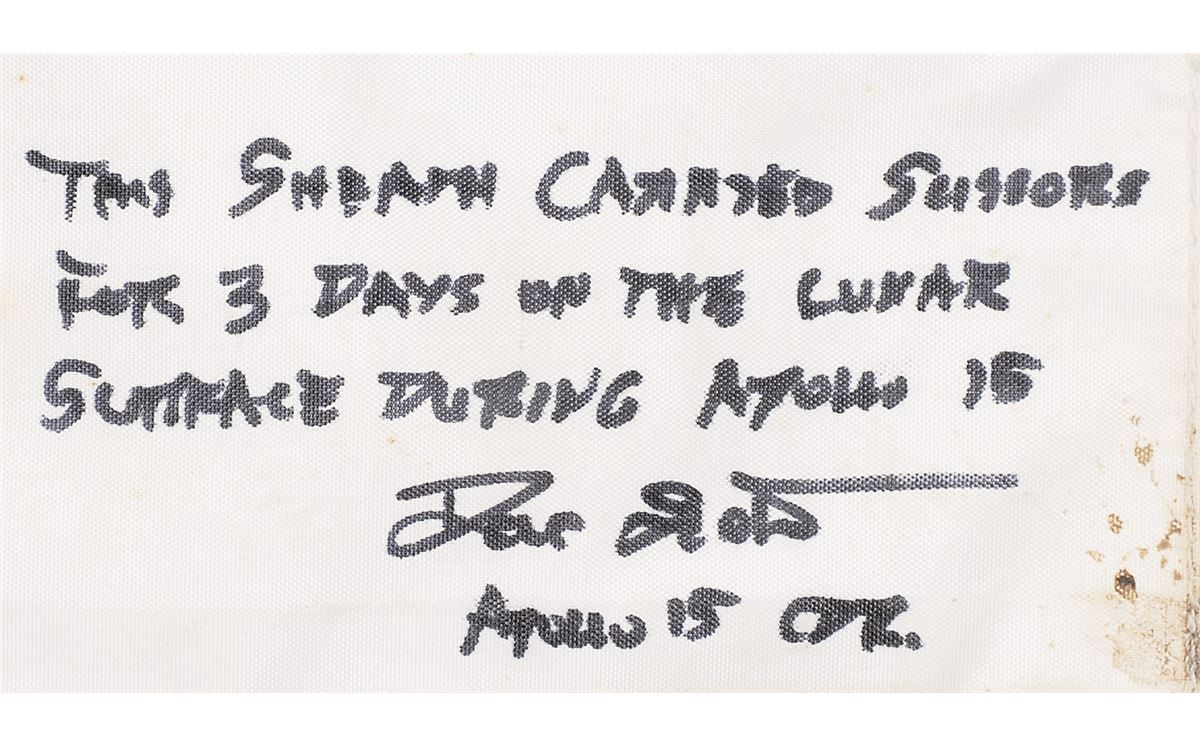 THIS SHEATH CARRIED SCISSORS
FOR 3 DAYS ON THE LUNAR
SURFACE DURING APOLLO 15
Dave Scott
APOLLO 15 CDR.